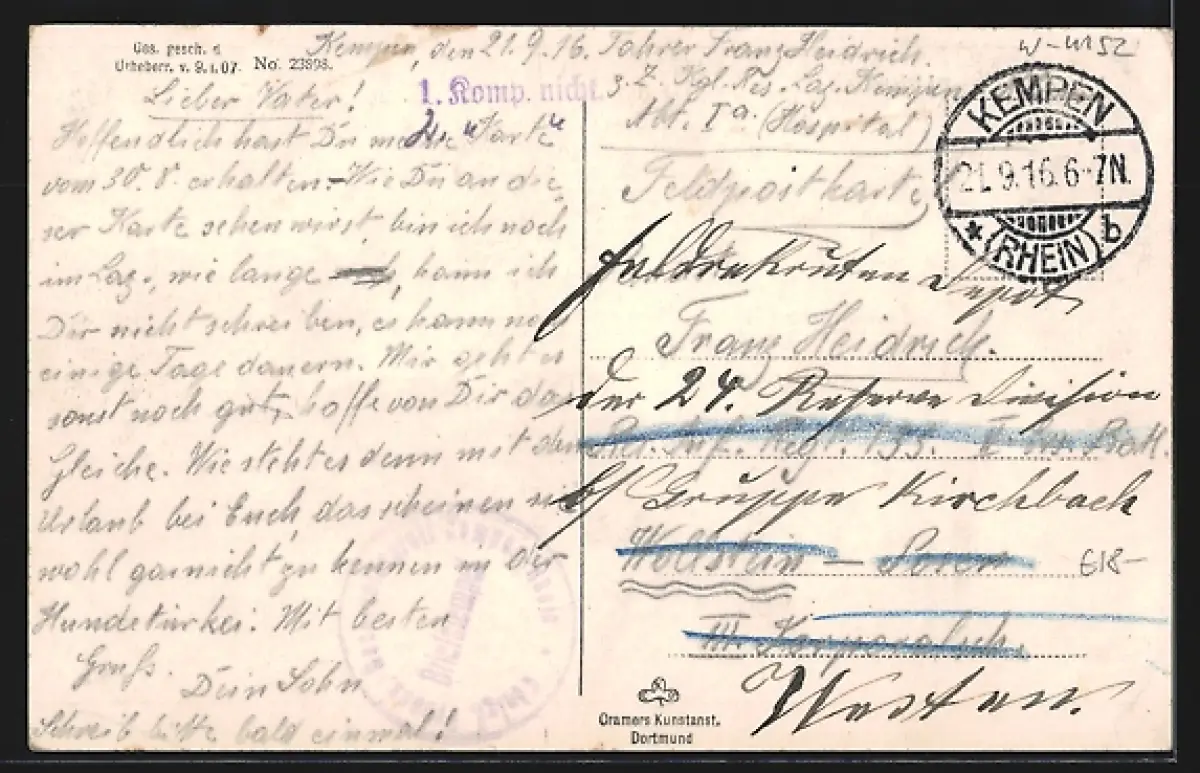 Ges. gesch. d
Urheberr. v. 9.1.07. No. 23898.
Kempen, den 21.9.16. Fahrer Franz Heidrich.
W-4152
3. Z. Kgl. Res. Laz. Kempen
Abt. Ia. (Hospital)
Feldpostkarte
1. Komp. nicht
KEMPEN
21.9.16.6-7N.
(RHEIN) b
Lieber Vater!
Hoffendlich hast Du meine „Karte“
vom 30.8. erhalten. Wie Du an die
ser Karte sehen wirst, bin ich noch
im Laz., wie lange, kann ich
Dir nicht schreiben, es kann noch
einige Tage dauern. Mir geht es
sonst noch gut, hoffe von Dir das
Gleiche. Wie steht es denn mit dem
Urlaub bei Euch, das scheinen sie
wohl garnicht zu kennen in der
Hundetürkei. Mit besten
Gruß.
Dein Sohn
Schreib bitte bald einmal!
Feldrekruten Depot
Franz Heidrich.
der 24. Reserve Division
Res. Inf. Regt. 133. II. Batl.
Gruppe Kirchbach
Wollstein – Posen
III. Korporalsch.
Westen.
€18-
Cramers Kunstanst.
Dortmund